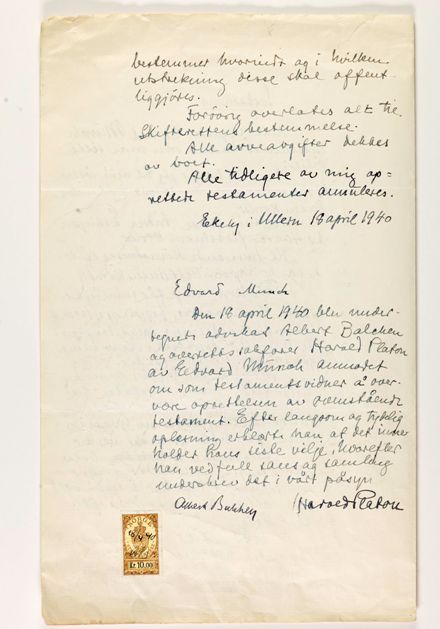 bestemmer hvorledes og i hvilken
utstrekning disse skal offent-
liggjøres.
Forøvrig overlates alt til
Skifterettens bestemmelse.
Alle arveavgifter dekkes
av boet.
Alle tidligere av mig op-
rettede testamenter annuleres.
Ekely i Ullern 18 april 1940
Edvard Munch
Den 18 april 1940 blev under-
tegnede advokat Albert Balchen
og overrettssakfører Harald Platou
av Edvard Munch anmodet
om som testamentsvidner å over-
være oprettelsen av ovenstående
testament. Efter langsom og tydelig
oplesning erklærte han at det inne-
holder hans siste vilje, hvorefter
han ved full sans og samling
underskrev det i vårt påsyn
Albert Balchen Harald Platou
NORGE
18/4 40
Kr. 10.00